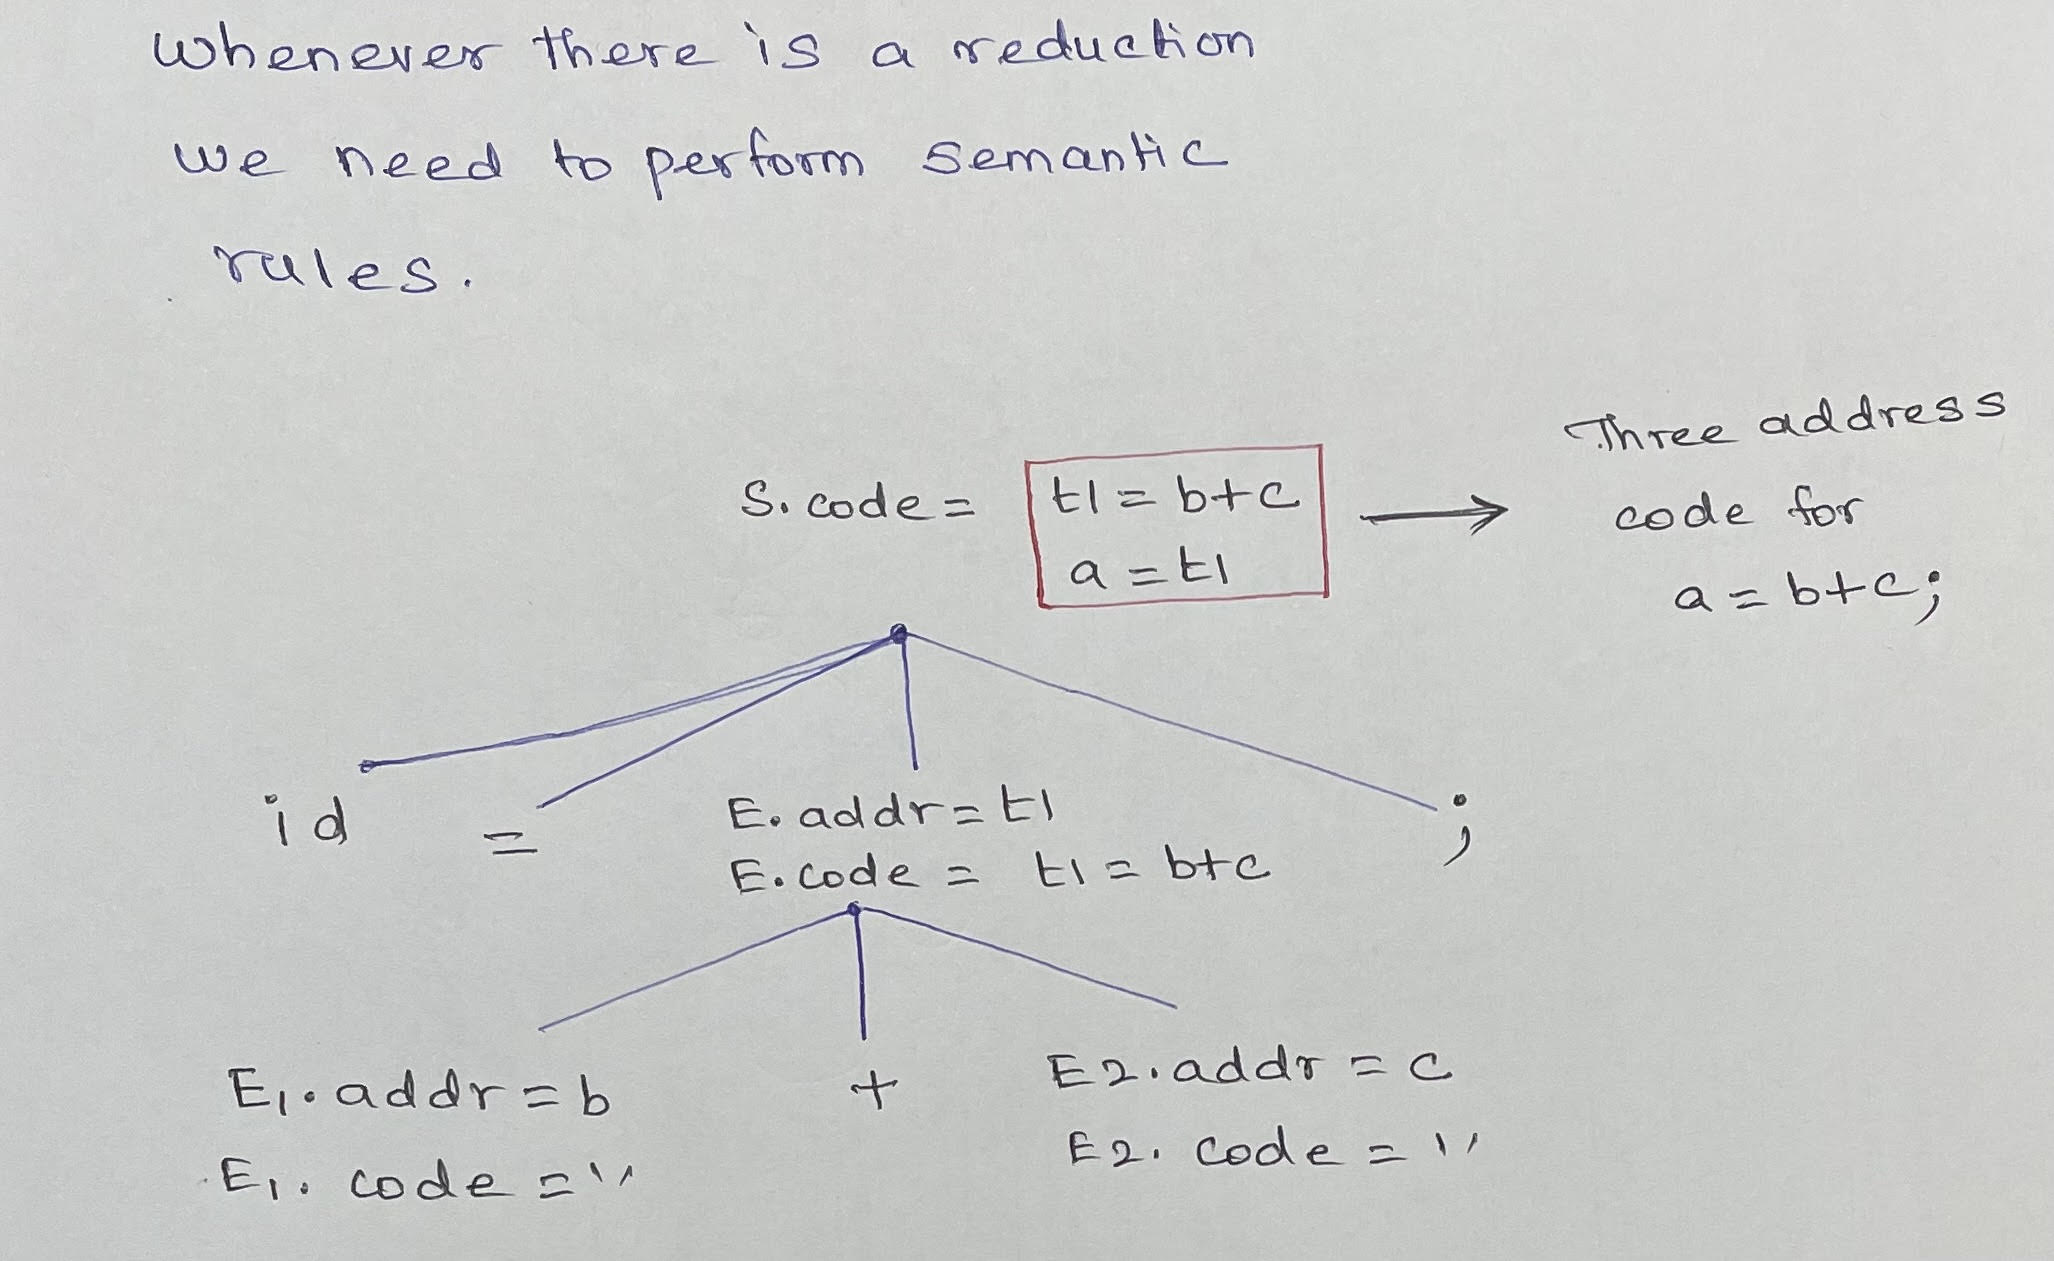 Whenever there is a reduction
we need to perform semantic
rules.
S.code = t1 = b+c
a = t1
Three address
code for
a = b+c;
id = E.addr = t1 ;
E.code = t1 = b+c
E1.addr = b + E2.addr = c
E1.code = '' E2.code = ''